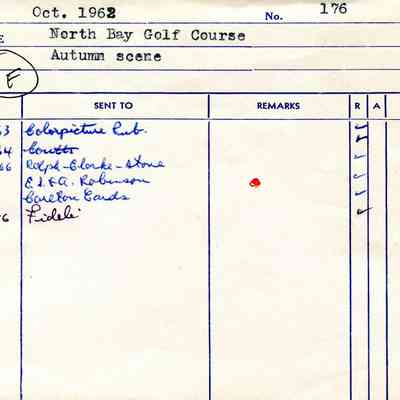 Oct. 1962 No. 176
E North Bay Golf Course
Autumn scene
E
SENT TO REMARKS R A
3 Colorpicture Pub.
4 Coutts
66 Rolph-Clarke-Stone
E.S.&A. Robinson
Carlton Cards
6 Fideli